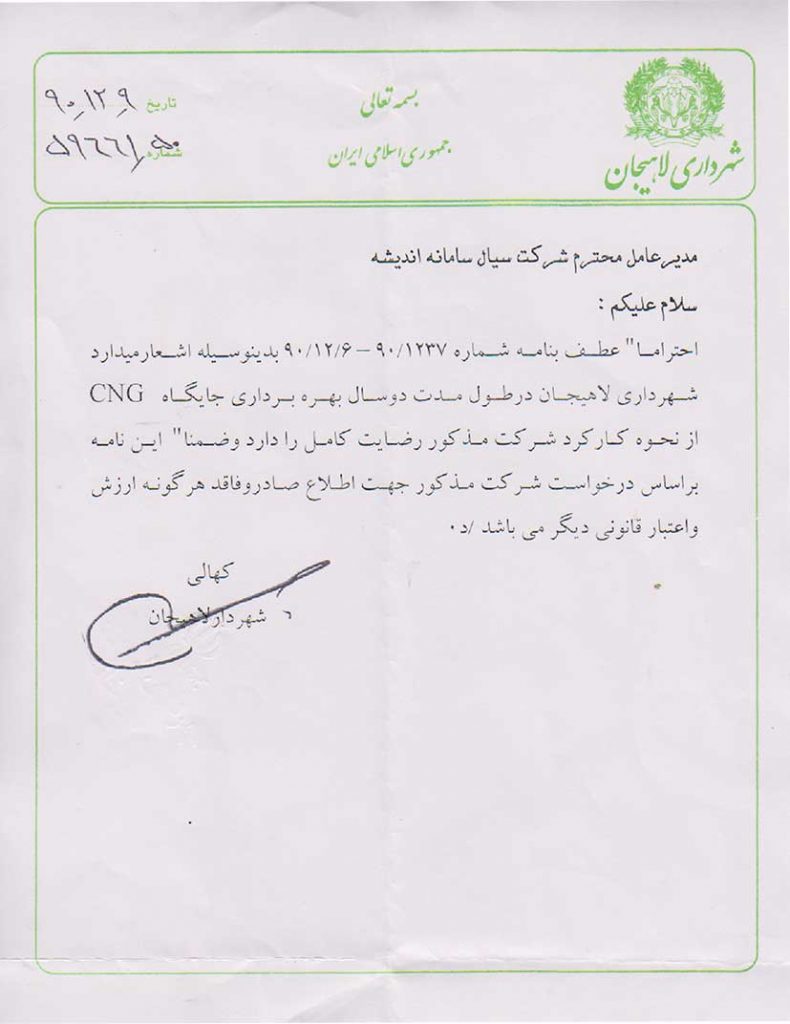 بسمه تعالی
جمهوری اسلامی ایران
شهرداری لاهیجان
تاریخ ۹۰٫۱۲٫۹
شماره
مدیرعامل محترم شرکت سیال سامانه اندیشه
سلام علیکم :
احتراما" عطف بنامه شماره ۹۰/۱۲۳۷ – ۹۰/۱۲/۶ بدینوسیله اشعارمیدارد
شهرداری لاهیجان درطول مدت دوسال بهره برداری جایگاه CNG
از نحوه کارکرد شرکت مذکور رضایت کامل را دارد وضمنا" این نامه
براساس درخواست شرکت مذکور جهت اطلاع صادروفاقد هرگونه ارزش
واعتبار قانونی دیگر می باشد /د۰
کهالی
شهردارلاهیجان